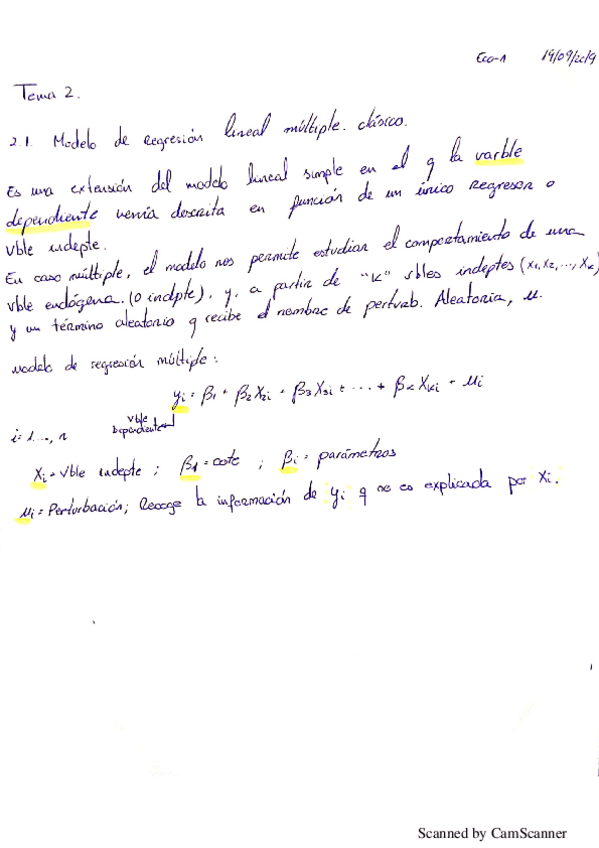 Eco-1 19/09/2019
Tema 2.
2.1. Modelo de regresión lineal múltiple. clásico.
Es una extensión del modelo lineal simple en el q la varble
dependiente venía descrita en función de un único regresor o
vble indepte.
En caso múltiple, el modelo nos permite estudiar el comportamiento de una
vble endógena. (o indpte), y, a partir de "K" vbles indeptes (x1, x2, ..., xK)
y un término aleatorio q recibe el nombre de perturb. Aleatoria, u.
modelo de regresión múltiple:
yi = β1 + β2 X2i + β3 X3i + ... + βK XKi + ui
vble
i = 1..., n Dependiente
Xi = vble indepte ; β1 = cste ; βi = parámetros
ui = Perturbación; Recoge la información de yi q no es explicada por Xi.
Scanned by CamScanner